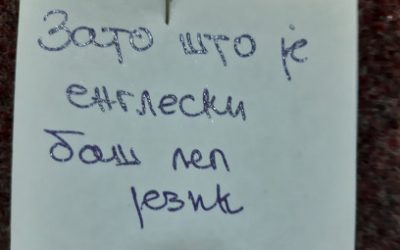 Зато што је
енглески
баш леп
језик